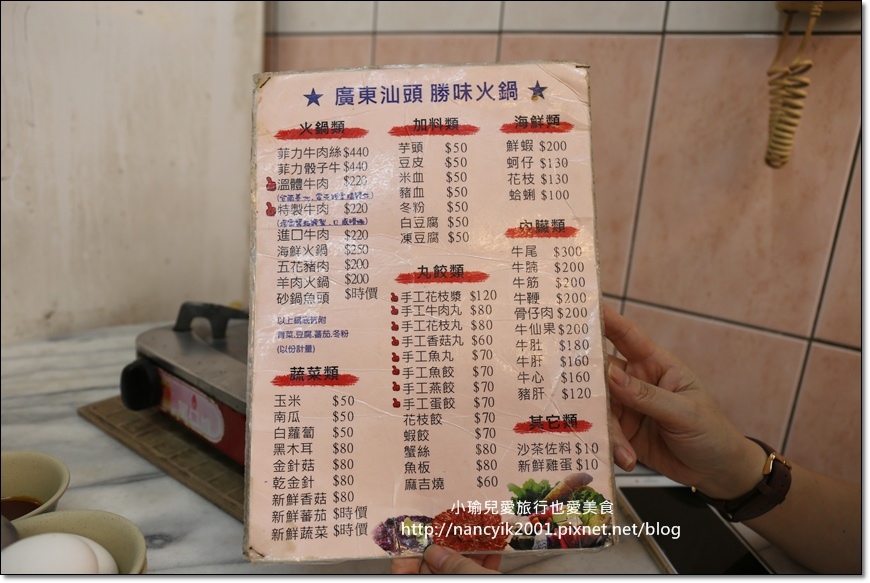 廣東汕頭 勝味火鍋
火鍋類
菲力牛肉絲 $440
菲力骰子牛 $440
溫體牛肉 $220
特製牛肉 $220
進口牛肉 $220
海鮮火鍋 $250
五花豬肉 $200
羊肉火鍋 $200
砂鍋魚頭 $時價
以上鍋底皆附
青菜,豆腐,蕃茄,冬粉
(以份計量)
蔬菜類
玉米 $50
南瓜 $50
白蘿蔔 $50
黑木耳 $80
金針菇 $80
乾金針 $80
新鮮香菇 $80
新鮮蕃茄 $時價
新鮮蔬菜 $時價
加料類
芋頭 $50
豆皮 $50
米血 $50
豬血 $50
冬粉 $50
白豆腐 $50
凍豆腐 $50
丸餃類
手工花枝漿 $120
手工牛肉丸 $80
手工花枝丸 $80
手工香菇丸 $60
手工魚丸 $70
手工魚餃 $70
手工燕餃 $70
手工蛋餃 $70
花枝餃 $70
蝦餃 $70
蟹絲 $80
魚板 $80
麻吉燒 $60
海鮮類
鮮蝦 $200
蚵仔 $130
花枝 $130
蛤蜊 $100
內臟類
牛尾 $300
牛腩 $200
牛筋 $200
牛鞭 $200
骨仔肉 $200
牛仙果 $200
牛肚 $180
牛肝 $160
牛心 $160
豬肝 $120
其它類
沙茶佐料 $10
新鮮雞蛋 $10
小瑜兒愛旅行也愛美食
http://nancyik2001.pixnet.net/blog